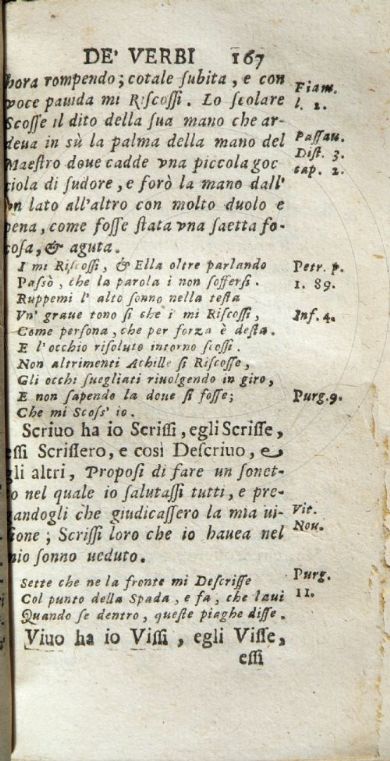 DE' VERBI 167
hora rompendo; cotale ſubita, e con
voce pauida mi Riſcoſſi. Lo ſcolare
Scoſſe il dito della ſua mano che ar-
deua in sù la palma della mano del
Maeſtro doue cadde vna piccola goc
ciola di ſudore, e forò la mano dall'
vn lato all'altro con molto duolo e
pena, come foſſe ſtata vna ſaetta fo-
coſa, & aguta.
I mi Riſcoſſi, & Ella oltre parlando
Paſsò, che la parola i non ſofferſi.
Ruppemi l' alto ſonno nella teſta
Vn' graue tono ſi che i mi Riſcoſſi,
Come perſona, che per forza è deſta.
E l'occhio riſoluto intorno ſcoſſi
Non altrimenti Achille ſi Riſcoſſe,
Gli occhi ſuegliati riuolgendo in giro,
E non ſapendo la doue ſi foſſe;
Che mi Scoſs' io.
Scriuo ha io Scriſſi, egli Scriſſe,
eſſi Scriſſero, e così Deſcriuo, e
gli altri, Propoſi di fare un ſonet-
to nel quale io ſalutaſſi tutti, e pre-
gandogli che giudicaſſero la mia ui-
ſione; Scriſſi loro che io hauea nel
mio ſonno ueduto.
Sette che ne la fronte mi Deſcriſſe
Col punto della Spada, e fa, che laui
Quando ſe dentro, queſte piaghe diſſe.
Viuo ha io Viſſi, egli Viſſe,
eſſi
Fiam.
l. 1.
Paſſau.
Diſt. 3.
cap. 2.
Petr. p.
1. 89.
Inf. 4.
Purg. 9.
Vit.
Nou.
Purg.
11.